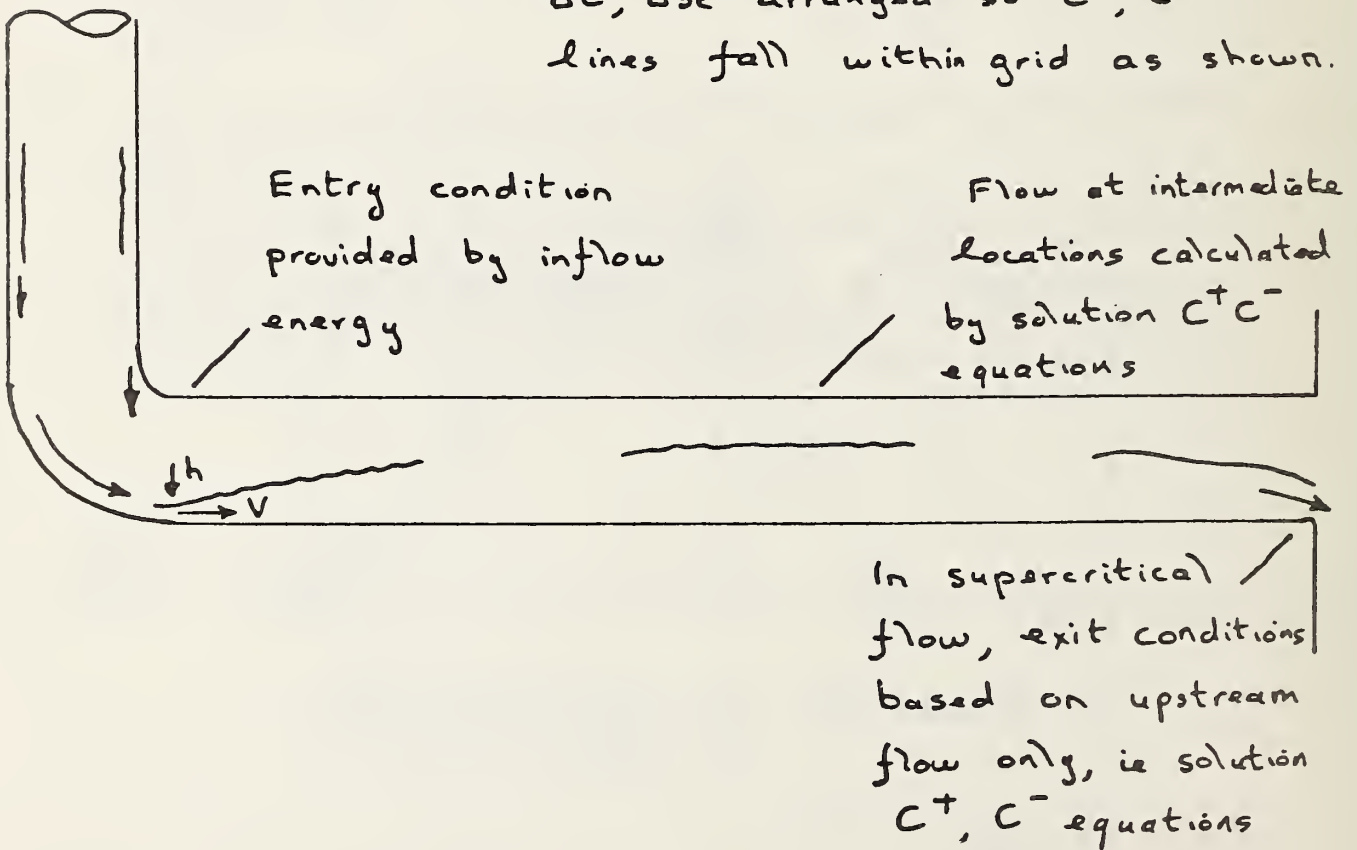 lines fall within grid as shown.
Entry condition
provided by inflow
energy
Flow at intermediate
locations calculated
by solution C⁺ C⁻
equations
h
V
In supercritical
flow, exit conditions
based on upstream
flow only, ie solution
C⁺, C⁻ equations